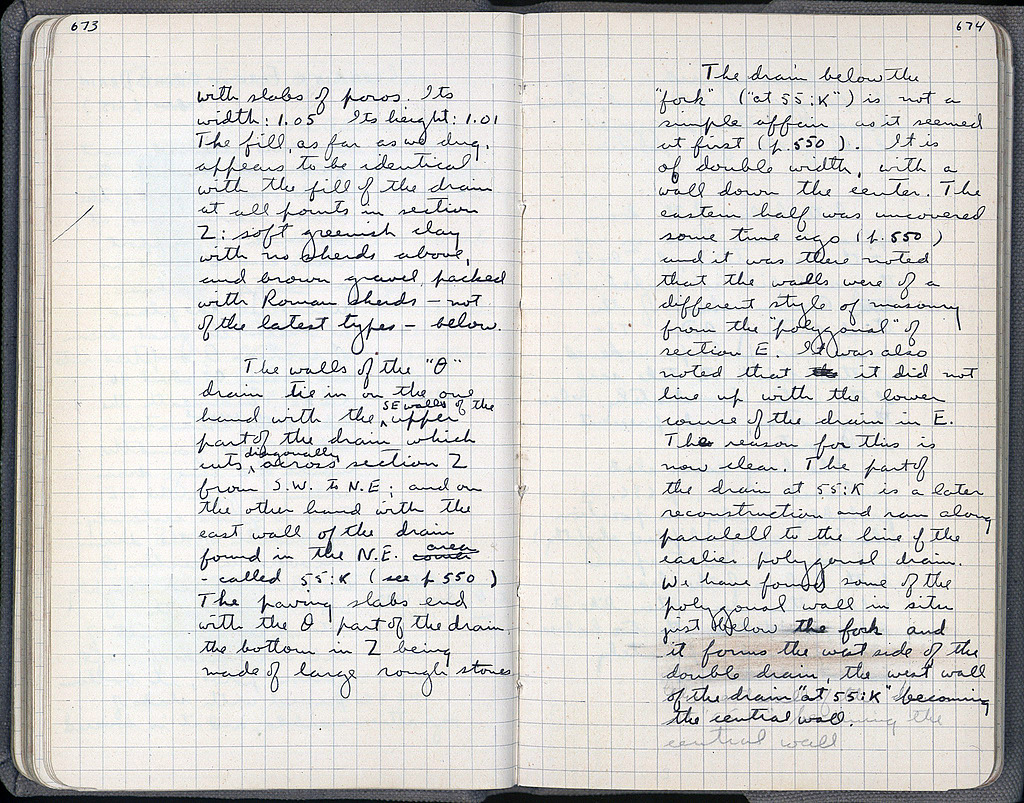 673
with slabs of poros. Its
width: 1.05 Its height: 1.01
The fill, as far as we dug,
appears to be identical
with the fill of the drain
at all points in section
Z: soft greenish clay
with no sherds above,
and brown gravel, packed
with Roman sherds – not
of the latest types – below.
The walls of the "θ"
drain tie in on the one
hand with the SE walls of the upper
part of the drain which
cuts diagonally across section Z
from S.W. to N.E; and on
the other hand with the
east wall of the drain
found in the N.E. area
- called 55:K (see p 550)
The paving slabs end
with the θ part of the drain,
the bottom in Z being
made of large rough stones
674
The drain below the
"fork" ("at 55:K") is not a
simple affair as it seemed
at first (p. 550). It is
of double width, with a
wall down the center. The
eastern half was uncovered
some time ago (p. 550)
and it was there noted
that the walls were of a
different style of masonry
from the "polygonal" of
section E. It was also
noted that it did not
line up with the lower
course of the drain in E.
The reason for this is
now clear. The part of
the drain at 55:K is a later
reconstruction and ran along
paralell to the line of the
earlier polygonal drain.
We have found some of the
polygonal wall in situ
just below the fork and
it forms the west side of the
double drain, the west wall
of the drain "at 55:K" becoming
the central wall.
central wall